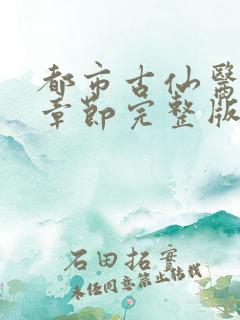 都市古仙醫
章節完整版
石田拓實
未经同意禁止转载